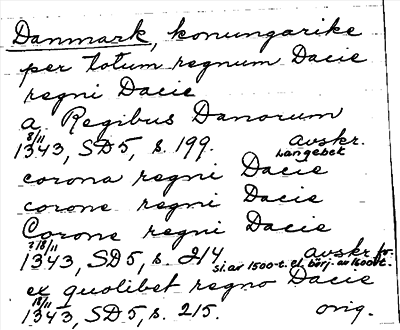 Danmark, konungarike
per totum regnum Dacie
regni Dacie
a Regibus Danorum
8/11
1343, SD5, s. 199. Avskr.
Langebek
corona regni Dacie
corone regni Dacie
Corone regni Dacie
? 18/11
1343, SD5, s. 214. Avskr. fr.
sl. av 1500-t. el. börj. av 1600-t.
ex quolibet regno Dacie
18/11
1343, SD5, s. 215. orig.